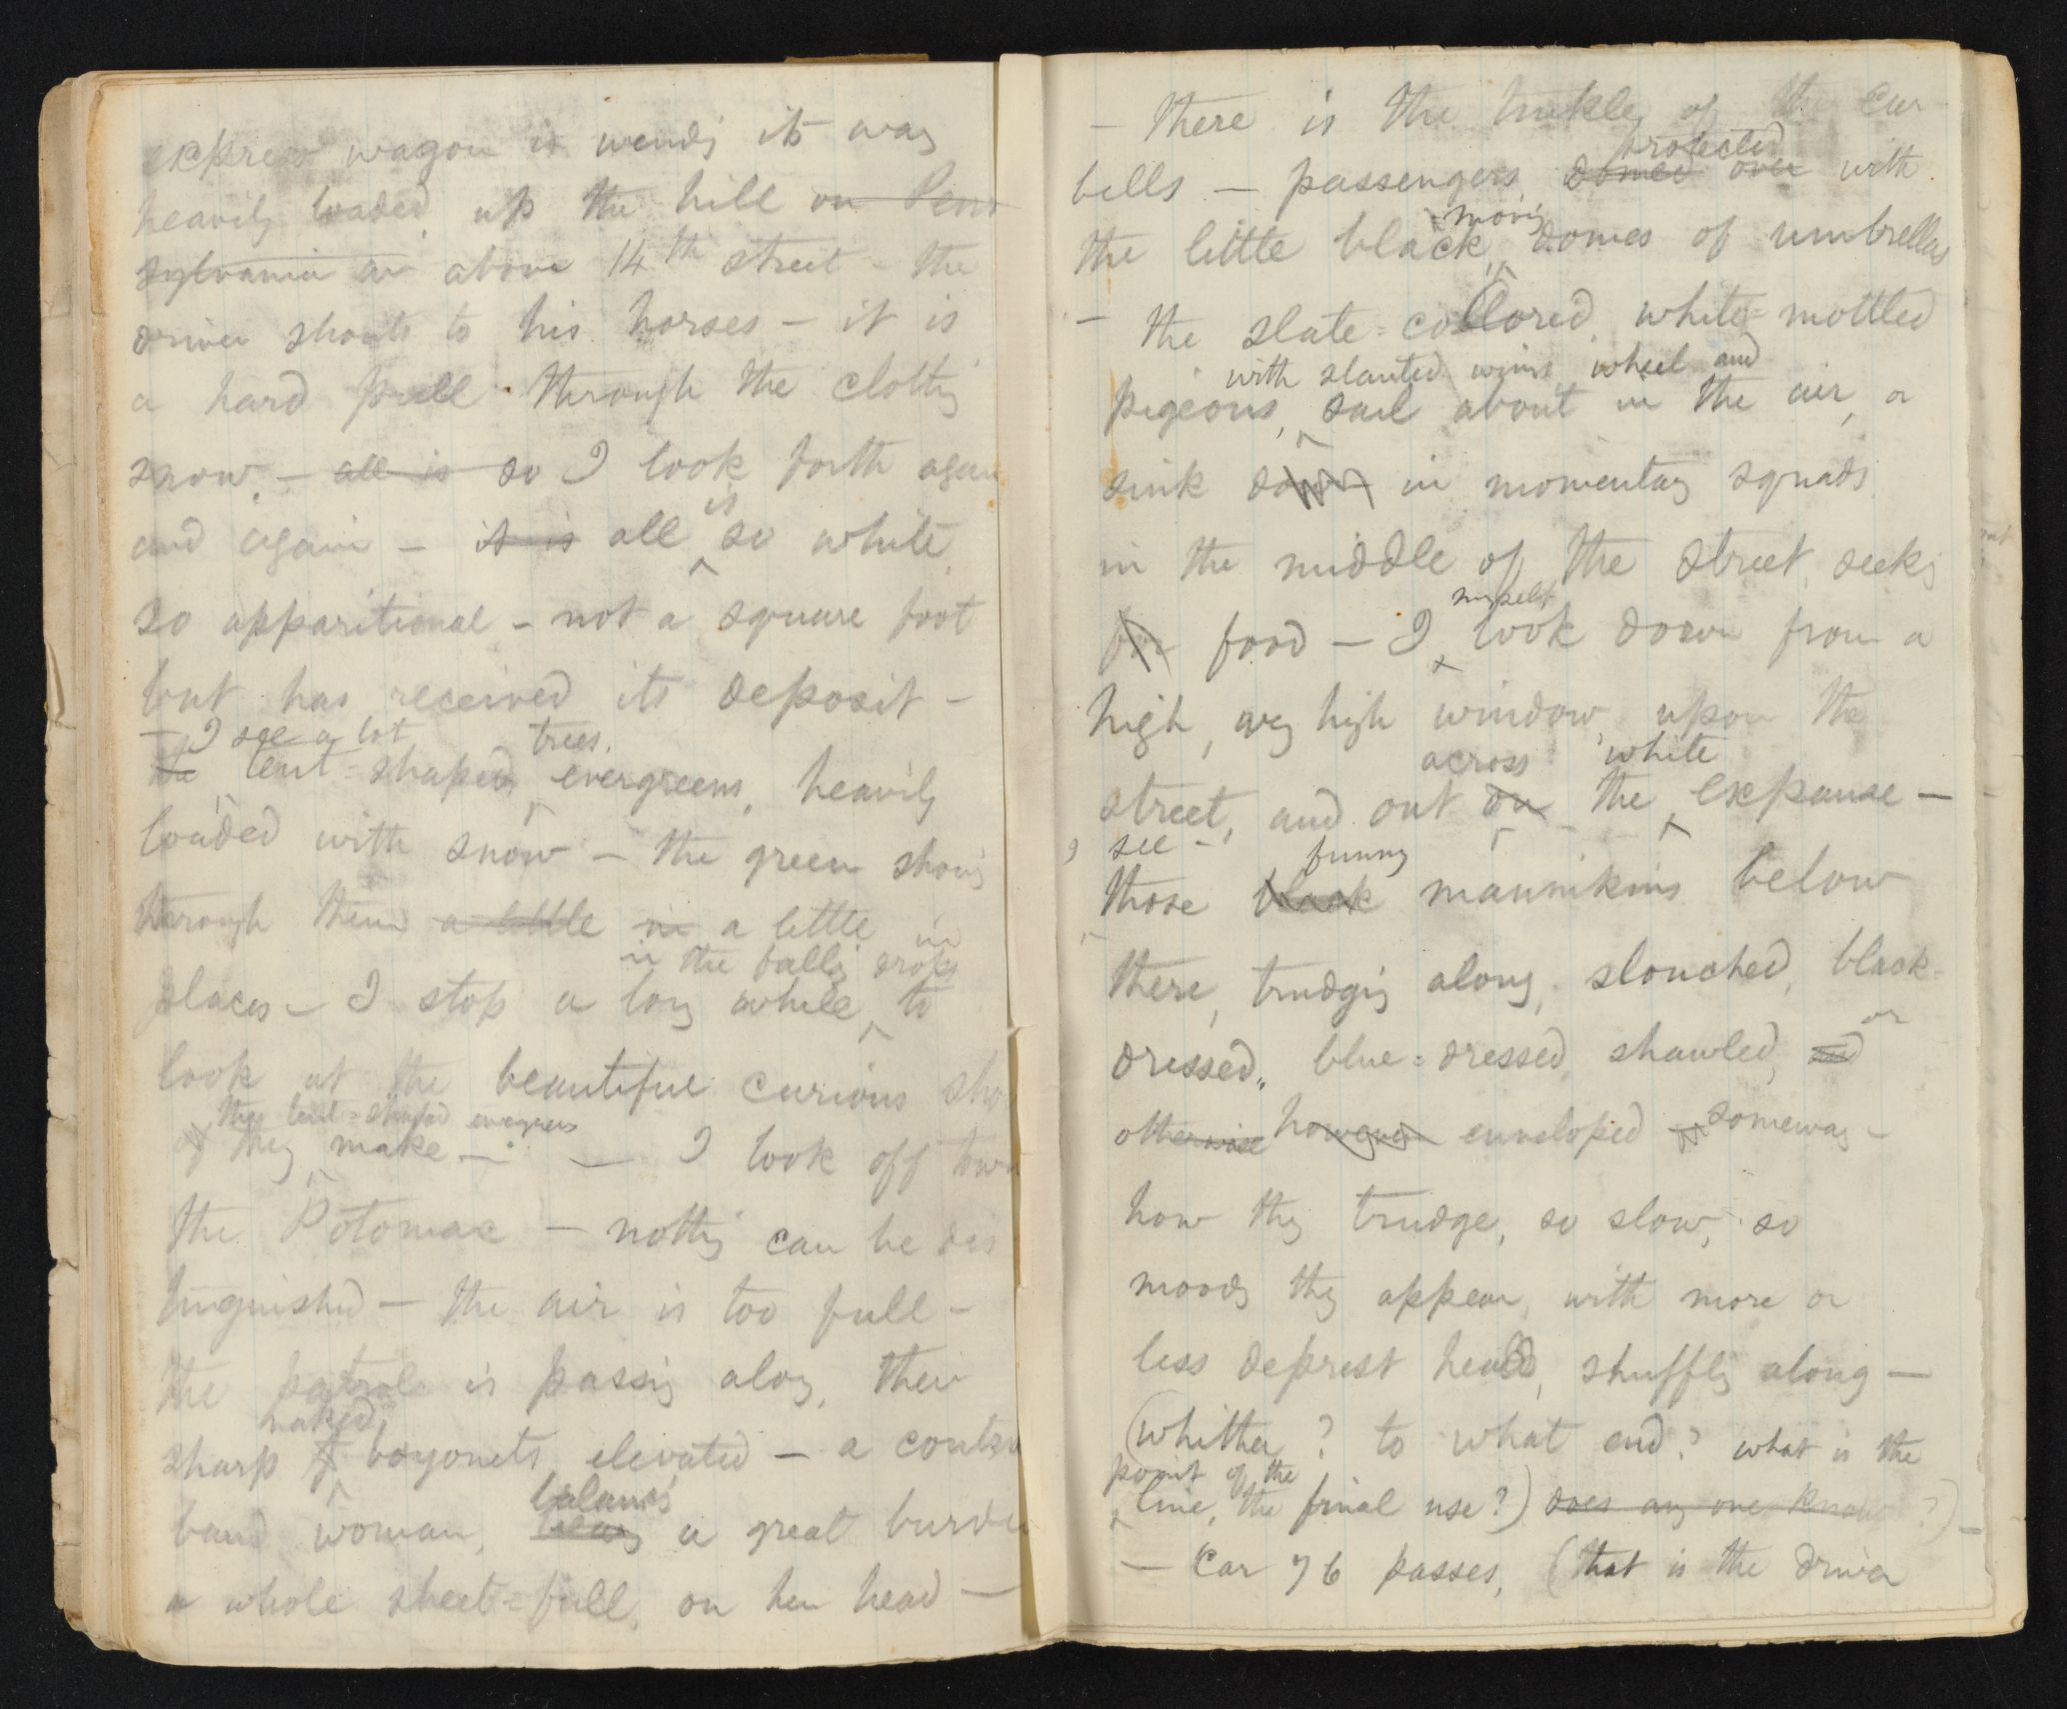 express wagon is wendg its way
heavily loaded, up the hill on Penn
sylvania av above 14th street – the
driver shouts to his horses – it is
a hard pull through the clottg
snow. – all is so I look forth again
is
and again – it is all so white,
so apparitional – not a square foot
but has received its deposit –
– I see a lot trees,
the tent=shaped evergreens, heavily
loaded with snow – the green showg
through them a little in a little in
in the fallg drops
places – I stop a long while, to
look at the beautiful curious sho
the tent=shaped evergreens
of they make – – I look off tow
the Potomac – nothg can be dis
tinguished – the air is too full –
the patrol is passig along, their
naked
sharp bayonets elevated – a contra
balancg
band woman, a great burde
a whole sheet=full, on her head –
– there is the tinkle of the car
protected
bells – passengers domed over with
movig
the little black, domes of umbrellas
– the slate=colored white=mottled
with slanted wings wheel and
pigeons, sail about in the air, or
sink down in momentary squads
in the middle of the street, seekg
myself
for food – I look down from a
high, very high window, upon the
across white
street, and out on the expanse –
I see – funny
those black mannikins below
there, trudgig along, slouched, black=
or
dressed,, blue=dressed, shawled, and
otherwise however enveloped someway –
how they trudge, so slow, so
moody they appear, with more or
less deprest heads, shufflg along –
(whither? to what end? what is the
point of the
line, the final use?) does any one know ?) –
– Car 76 passes, (that is the driver